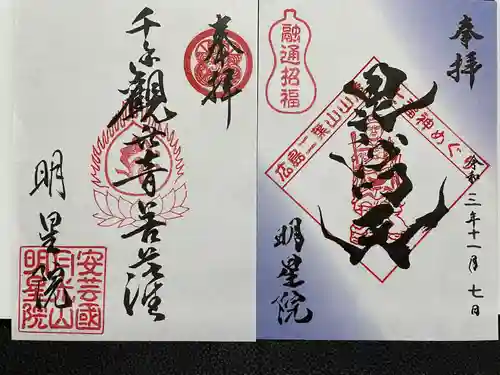 奉拝
千手
観世音菩薩
明星院
安芸國
月光山
明星院
奉拝
融通招福
毘沙門天
広島二葉山山
福神めぐ
令和三年十一月七日
明星院